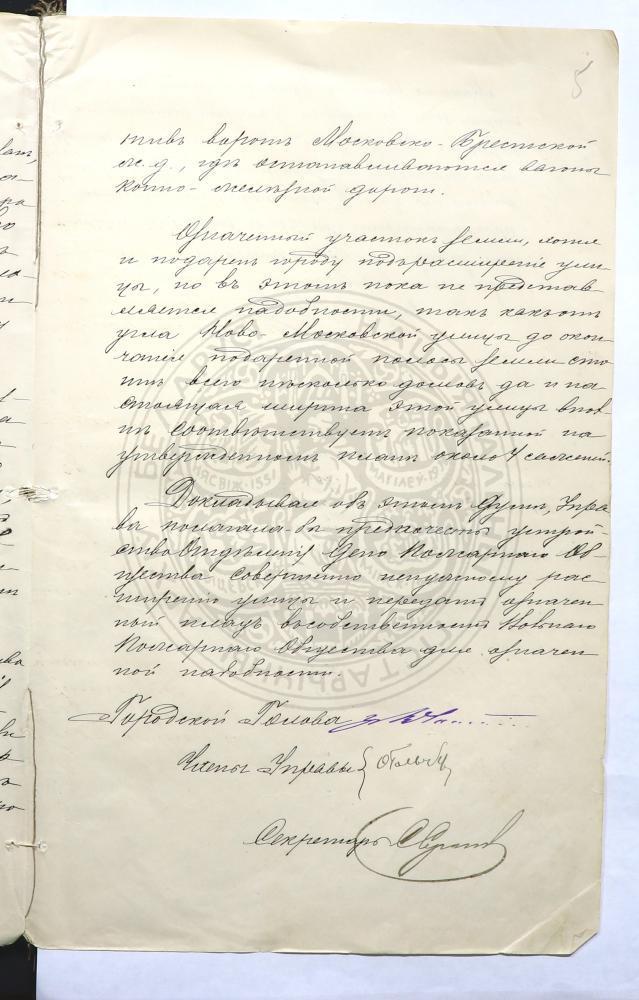 5
тивъ воротъ Московско-Брестской
ж. д., гдѣ останавливаются вагоны
конно-желѣзной дороги.
Означенный участокъ земли, хотя
и подаренъ городу подъ расширеніе ули-
цы, но въ этомъ пока не представ
ляется надобности, такъ какъ отъ
угла Ново-Московской улицы до окон
чанія подаренной полосы земли сто
итъ всего нѣсколько домовъ да и на
стоящая ширина этой улицы впол
нѣ соотвѣтствуетъ показанной на
утвержденномъ планѣ около 4 саженей.
Докладывая объ этомъ Думѣ, Упра
ва полагала-бы предпочесть устрой-
ство Отдѣленія Депо Пожарнаго Об-
щества совершенно ненужному рас
ширенію улицы и передать означен
ный плацъ въ собственность Вольнаго
Пожарнаго Общества для означен
ной надобности.
Городской Голова
Члены Управы
Секретарь